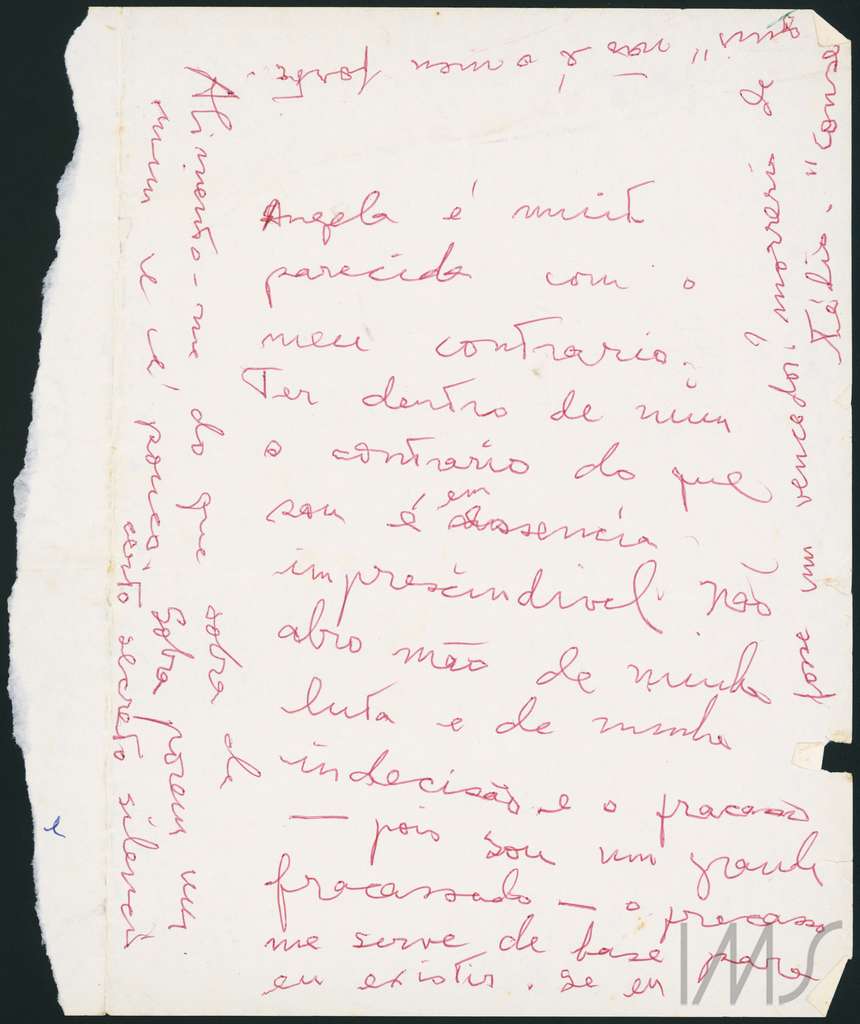 Angela é muito
parecida com o
meu contrario.
Ter dentro de mim
o contrario do que
sou é em essencia
imprescindivel. Não
abro mão de minha
luta e de minha
indecisão e o fracasso
— pois sou um grande
fracassado — o fracasso
me serve de base para
eu existir. Se eu
fosse um vencedor? morreria de
tédio. "Conse
guir" não é o meu forte.
Alimento-me do que sobra de
mim e é pouco. Sobra porem um
certo secreto silencio
IMS